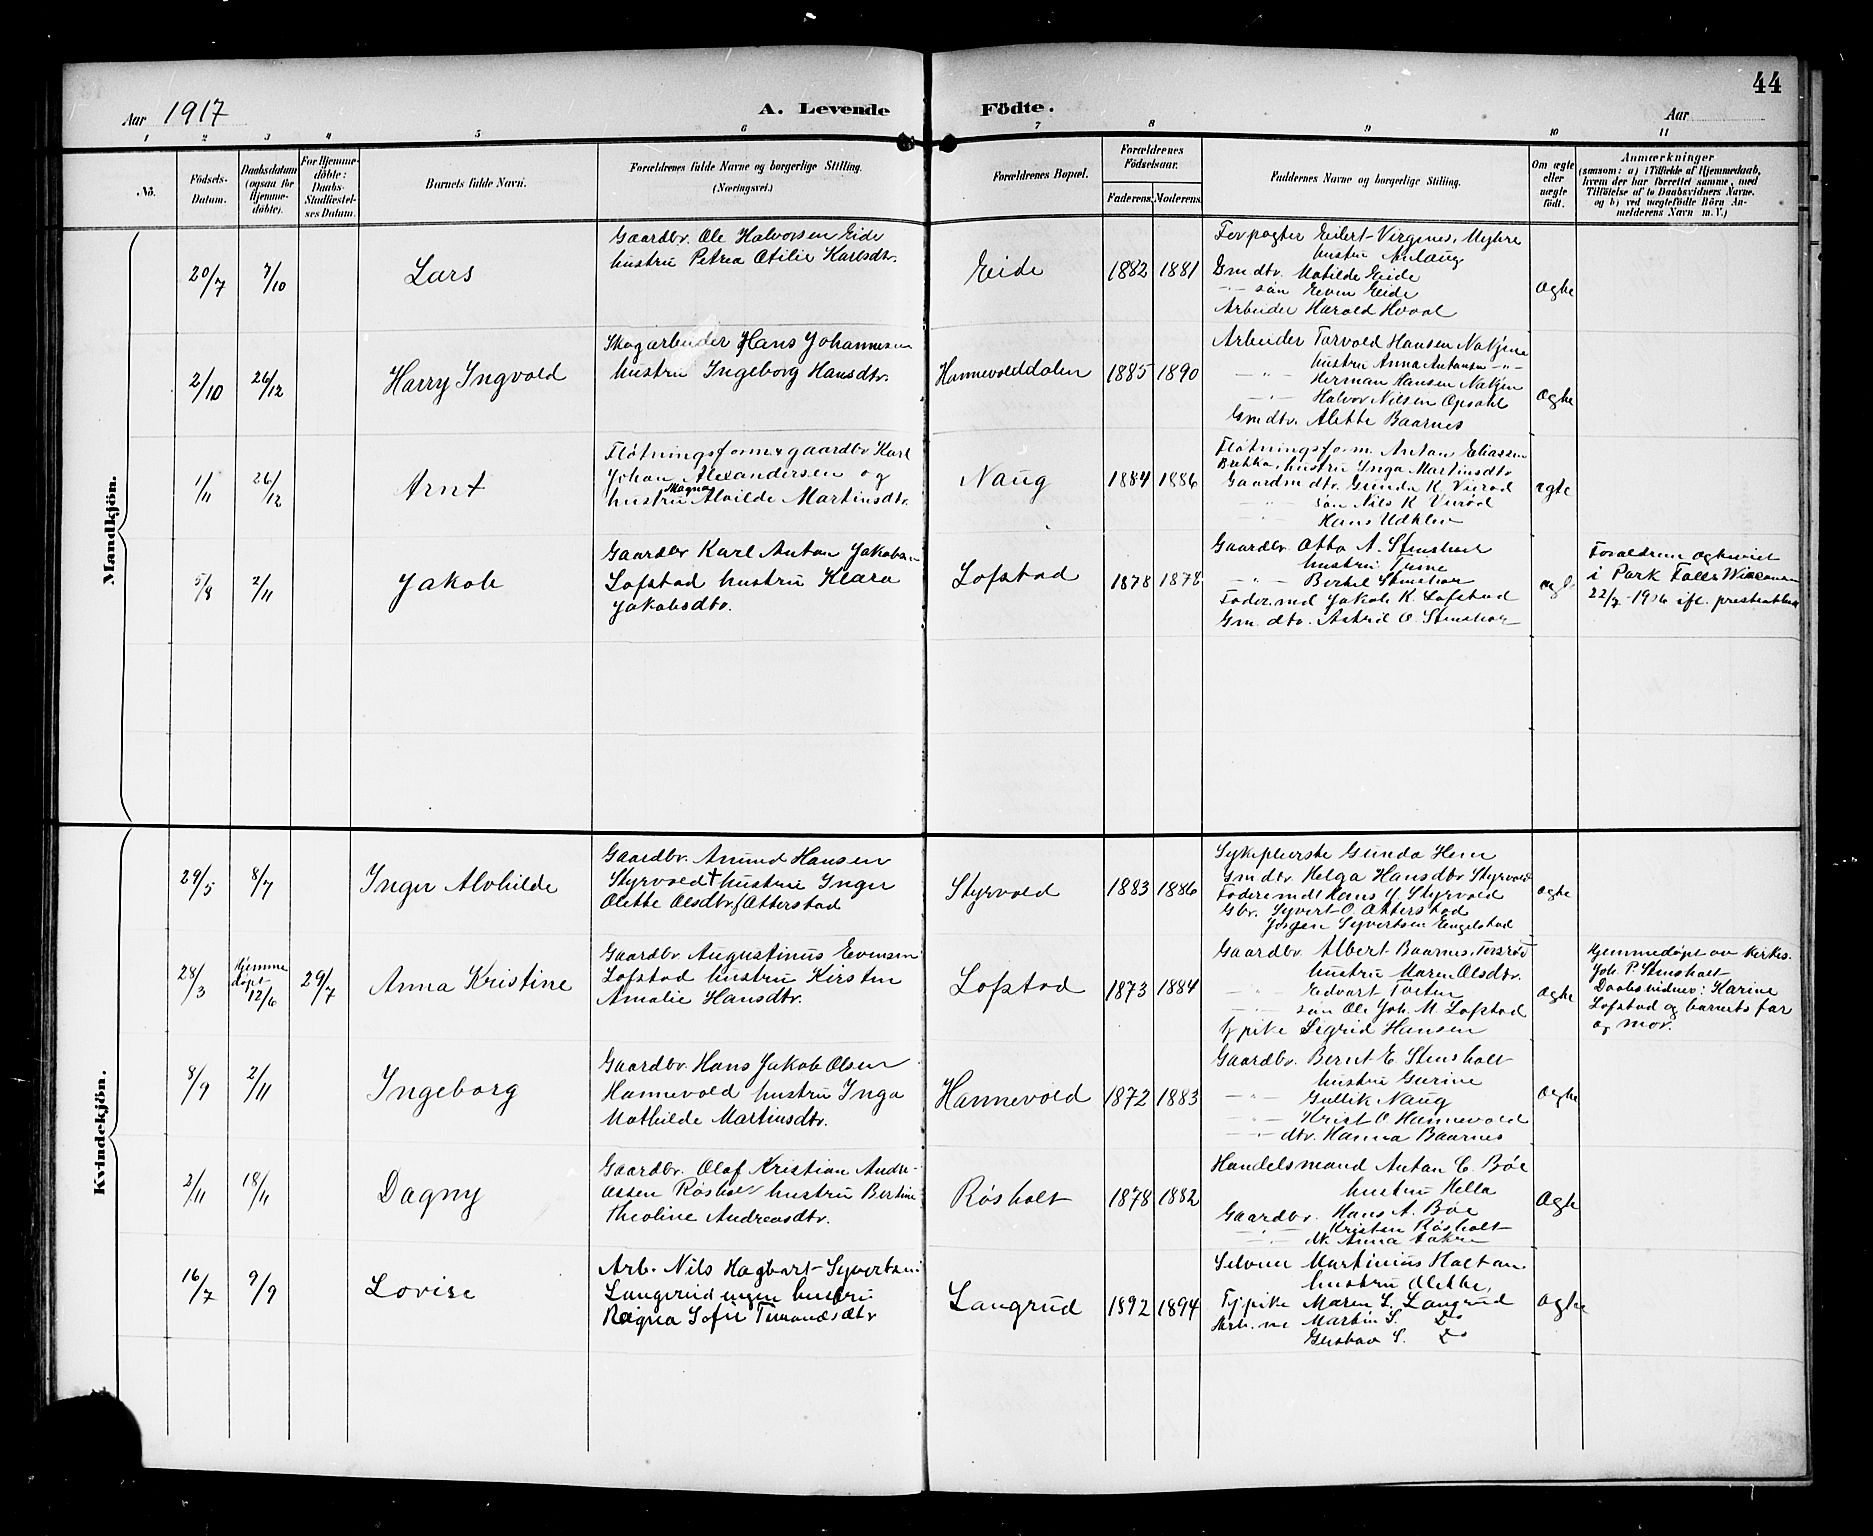 44
Aar 1917
A. Levende Födte.
Aar
1 2 3 4 5 6 7 8 9 10 11
No.
Födsels-Datum.
Daabsdatum (ogsaa for Hjemmedöbte).
For Hjemmedöbte: Daabs-Stadfæstelses Datum.
Barnets fulde Navn.
Forældrenes fulde Navne og borgerlige Stilling.
(Næringsvei.)
Forældrenes Bopæl.
Forældrenes Födselsaar.
Faderens. Moderens.
Faddernes Navne og borgerlige Stilling.
Om ægte eller uægte født.
Anmærkninger
(saasom: a) i Tilfælde af Hjemmedaab, hvem der har forrettet samme, med Tilföielse af to Daabsvidners Navne. og b) ved uægtefödte Börn Anmelderens Navn m. V.)
Mandkjön.
20/7 7/10 Lars
Gaardbr. Ole Halvorsen Eide
hustru Petrea Otilie Karlsdtr.
Eide 1882 1881
Forpagter Eilert Virgines. Myhre
hustru Aslaug
Gmdtr. Matilde Eide
-"- søn Even Eide
Arbeider Harald Hvaal
ægte
2/10 26/12 Harry Ingvald
Skogarbeider Hans Johannesen
hustru Ingeborg Hansdtr.
Hannevolddalen 1885 1890
Arbeider Torvald Hansen
hustru Anna Antonsen -"-
-"- Herman Hansen
-"- Halvor Nilsen Opsahl
Gmdtr. Alette Baarnes
ægte
1/11 26/12 Arnt
Fløtningsform. gaardbr. Karl
Johan Alexandersen og
hustru Magna Alvilde Martinsdtr.
Naug 1884 1886
Fløtningsform. Anton Eliassen
Bekka, hustru Inga Martinsdtr
Gaardmdtr. Gunda K.
-"- søn Nils K.
-"- Hans
ægte
5/8 2/11 Jakob
Gaardbr Karl Anton Jakobsen
Lofstad hustru Klara
Jakobsdtr.
Lofstad 1878 1878
Gaardbr. Otto A. Stensholt
hustru Trine
-"- Bertel Stensholt
Føder. md Jakob K. Lofstad
Gm. dtr. Astrid O. Stensholt
Forældrene egteviet
i Park Falls Wisconsin
22/7-1906 ifl. presteattest
Kvindekjön.
29/5 8/7 Inger Alvhilde
Gaardbr. Amund Hansen
Styrvold + hustru Inger
Olette Olsdtr. f. Atterstad
Styrvold 1883 1886
Sykepleierske Gunda Hem
Gmdtr. Helga Hansdtr Styrvold
Føderemdt Hans J. Styrvold
Gbr. Syvert O. Atterstad
Jørgen Syvertsen Engelstad
ægte
28/3 Hjemme døpt 12/6 29/7 Anna Kristine
Gaardbr. Augustinus Evensen
Lofstad hustru Kirsten
Amalie Hansdtr.
Lofstad 1873 1884
Gaardbr. Albert Baarnes,
hustru Maren Olsdtr.
-"- Edvart
-"- søn Ole Joh. M. Lofstad
Tjpike Sigrid Hansen
ægte
Hjemmedøpt av kirkes.
Joh. P. Stensholt
Daabsvidner: Karine
Lofstad og barnets far
og mor.
8/9 2/11 Ingeborg
Gaardbr. Hans Jakob Olsen
Hannevold hustru Inga
Mathilde Martinsdtr.
Hannevold 1872 1883
Gaardbr. Bernt E. Stensholt
hustru Gurine
-"- Gullik Naug
-"- Krist O. Hannevold
-"- dtr. Hanna Baarnes
ægte
2/11 18/11 Dagny
Gaardbr. Olaf Kristian Andreassen
Røsholt hustru Bertine
Theoline Andreasdtr.
Røsholt 1878 1882
Handelsmand Anton C. Bøe
hustru Hella
Gaardbr. Hans A. Bøe
-"- Kristen Røsholt
-"- Anna
ægte
16/7 9/9 Lovise
Arb. Nils Hagbart Syvertsen
Langerudengen hustru
Ragna Sofie
Langrud 1892 1894
Selveier Martinius Holtan
hustru Olette,
Tjpike Maren S. Langrud
Arb. m Martin S. Do
Gustav S. Do
ægte